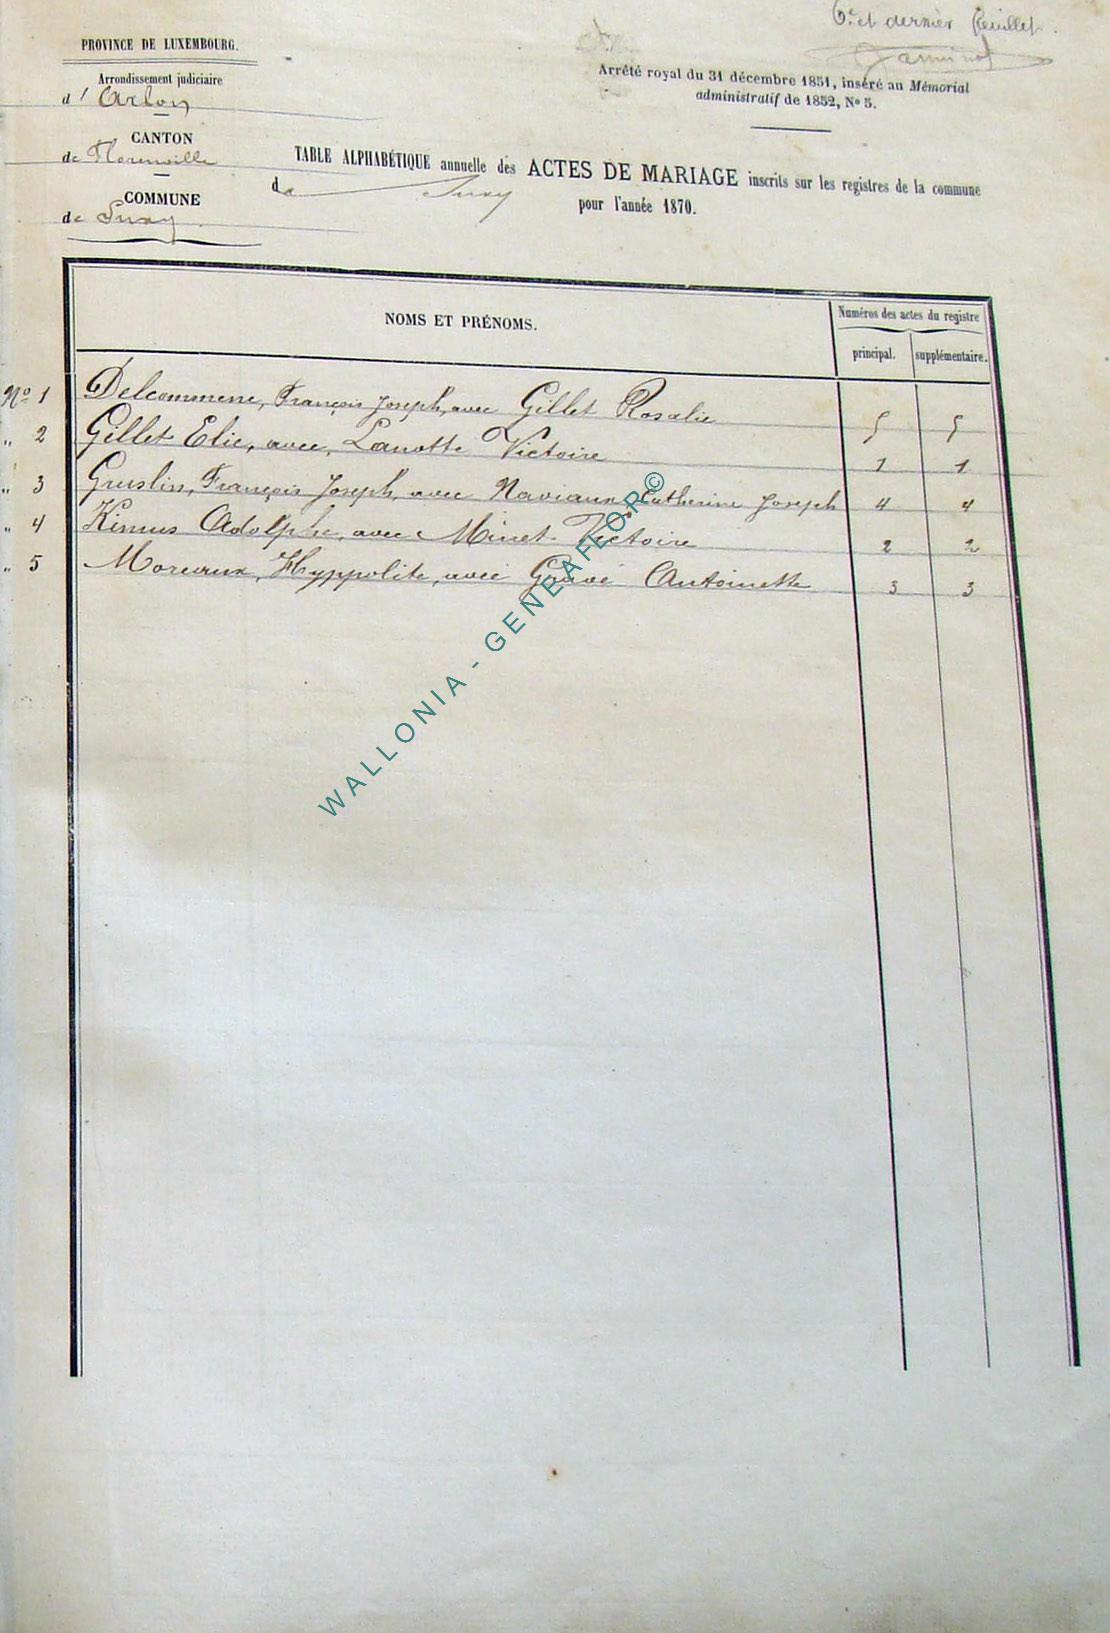 6e et dernier feuillet.
PROVINCE DE LUXEMBOURG.
Arrondissement judiciaire
d'Arlon
CANTON
de Florenville
COMMUNE
de Suxy.
Arrêté royal du 31 décembre 1851, inséré au Mémorial
administratif de 1852, No 5.
TABLE ALPHABÉTIQUE annuelle des ACTES DE MARIAGE inscrits sur les registres de la commune
de Suxy
pour l'année 1870.
NOMS ET PRÉNOMS.
Numéros des actes du registre
principal. supplémentaire.
No 1 Delcommene, François Joseph, avec Gillet Rosalie 5 5
„ 2 Gillet Elie, avec, Lanotte Victoire 1 1
„ 3 Gruslin, François Joseph, avec Naviaux, Catherine Joseph 4 4
„ 4 Kinnus Adolphe, avec Minet Victoire 2 2
„ 5 Moreaux, Hyppolite, avec Gravé Antoinette 3 3
WALLONIA - GENEAFLOR©